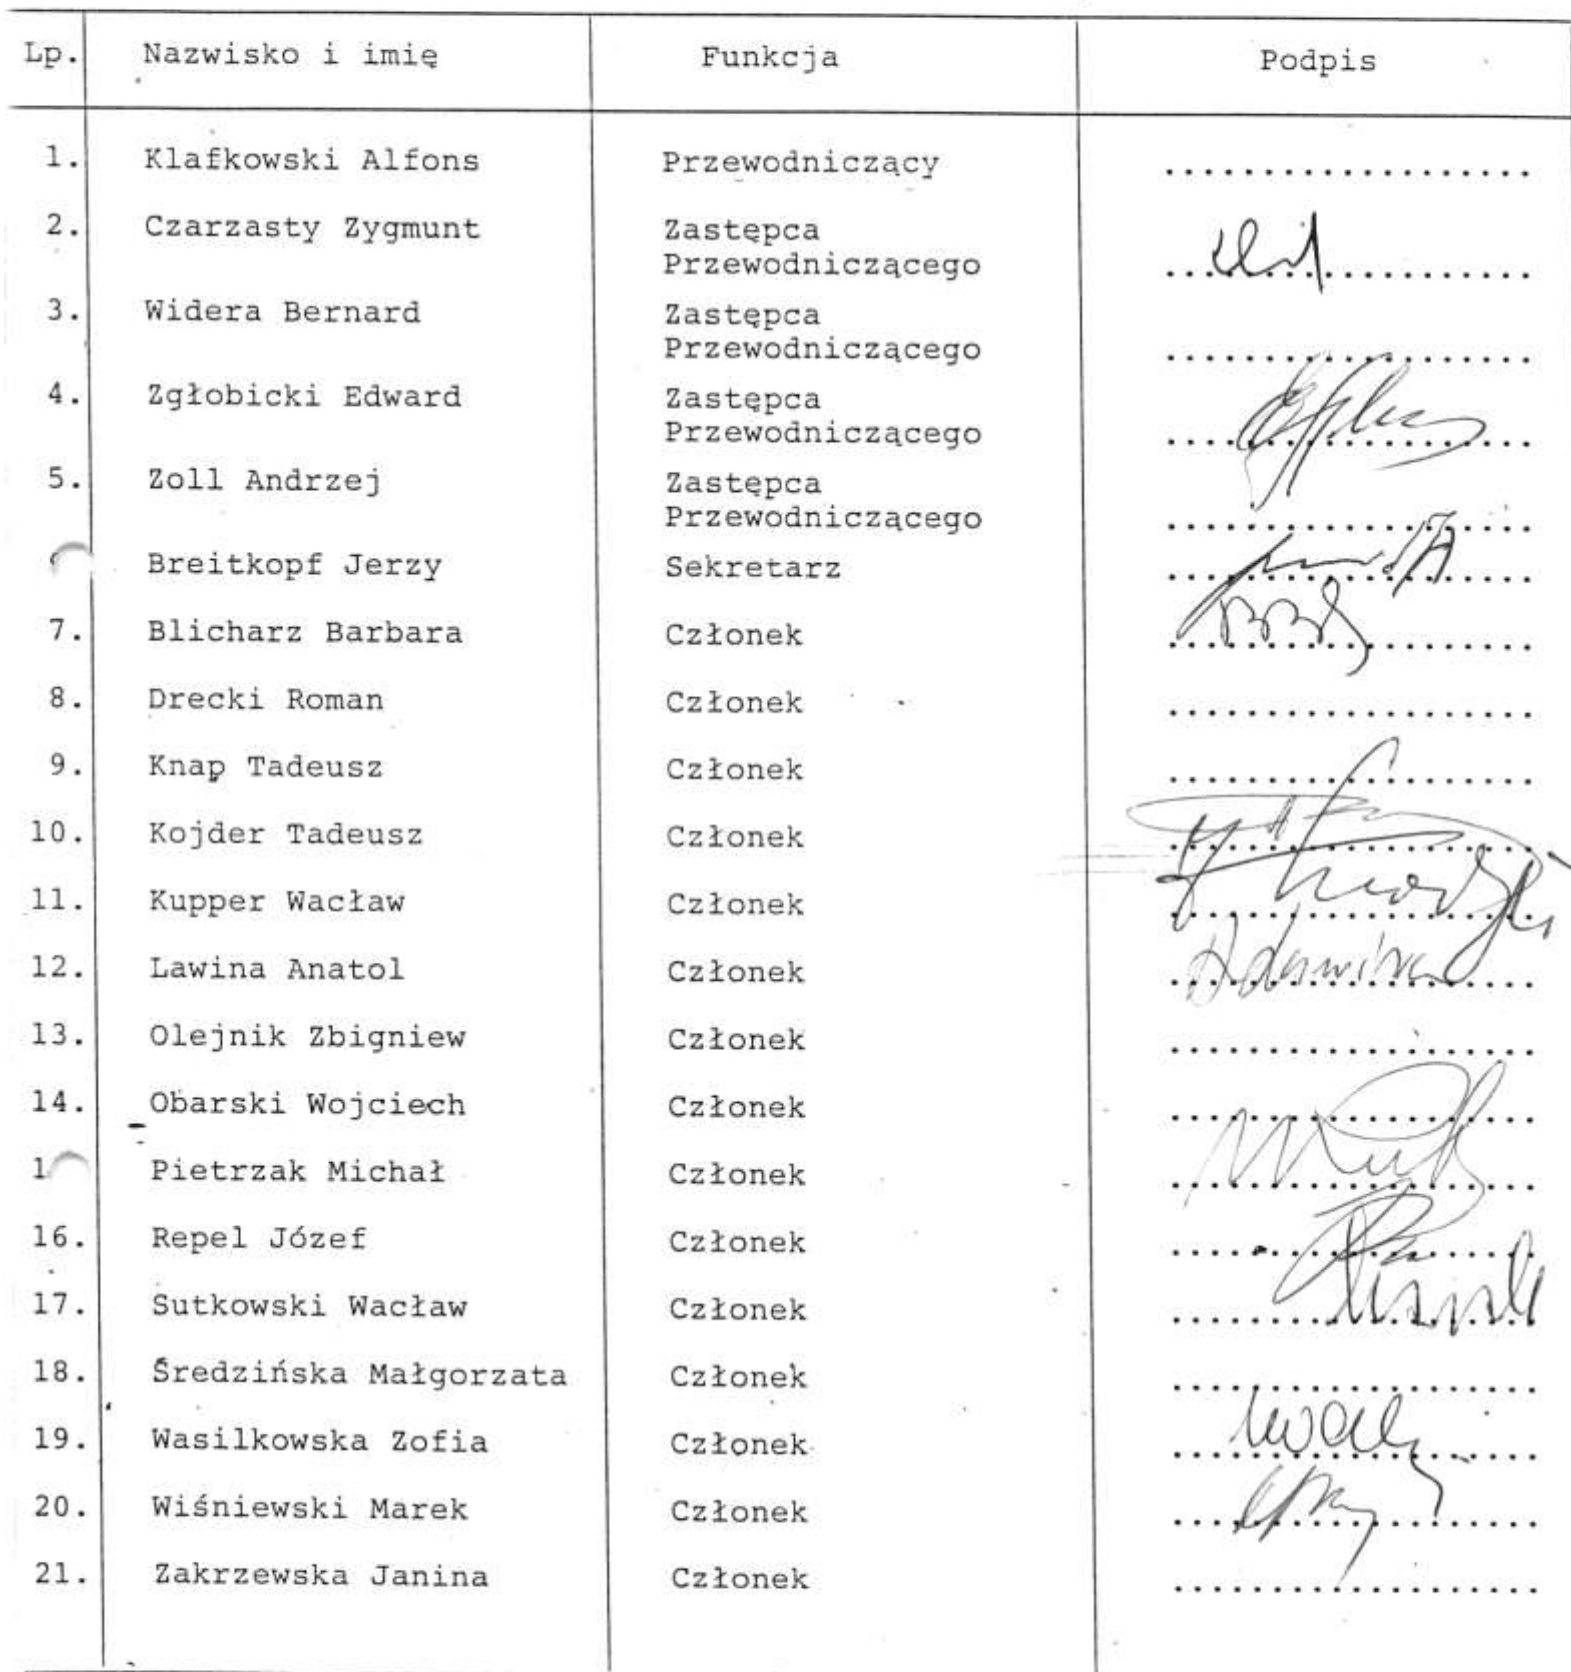 Lp. Nazwisko i imię Funkcja Podpis
1. Klafkowski Alfons Przewodniczący ...................
2. Czarzasty Zygmunt Zastępca
Przewodniczącego ...................
3. Widera Bernard Zastępca
Przewodniczącego ...................
4. Zgłobicki Edward Zastępca
Przewodniczącego ...................
5. Zoll Andrzej Zastępca
Przewodniczącego ...................
Breitkopf Jerzy Sekretarz ...................
7. Blicharz Barbara Członek ...................
8. Drecki Roman Członek ...................
9. Knap Tadeusz Członek ...................
10. Kojder Tadeusz Członek ...................
11. Kupper Wacław Członek ...................
12. Lawina Anatol Członek ...................
13. Olejnik Zbigniew Członek ...................
14. Obarski Wojciech Członek ...................
1 Pietrzak Michał Członek ...................
16. Repel Józef Członek ...................
17. Sutkowski Wacław Członek ...................
18. Średzińska Małgorzata Członek ...................
19. Wasilkowska Zofia Członek ...................
20. Wiśniewski Marek Członek ...................
21. Zakrzewska Janina Członek ...................